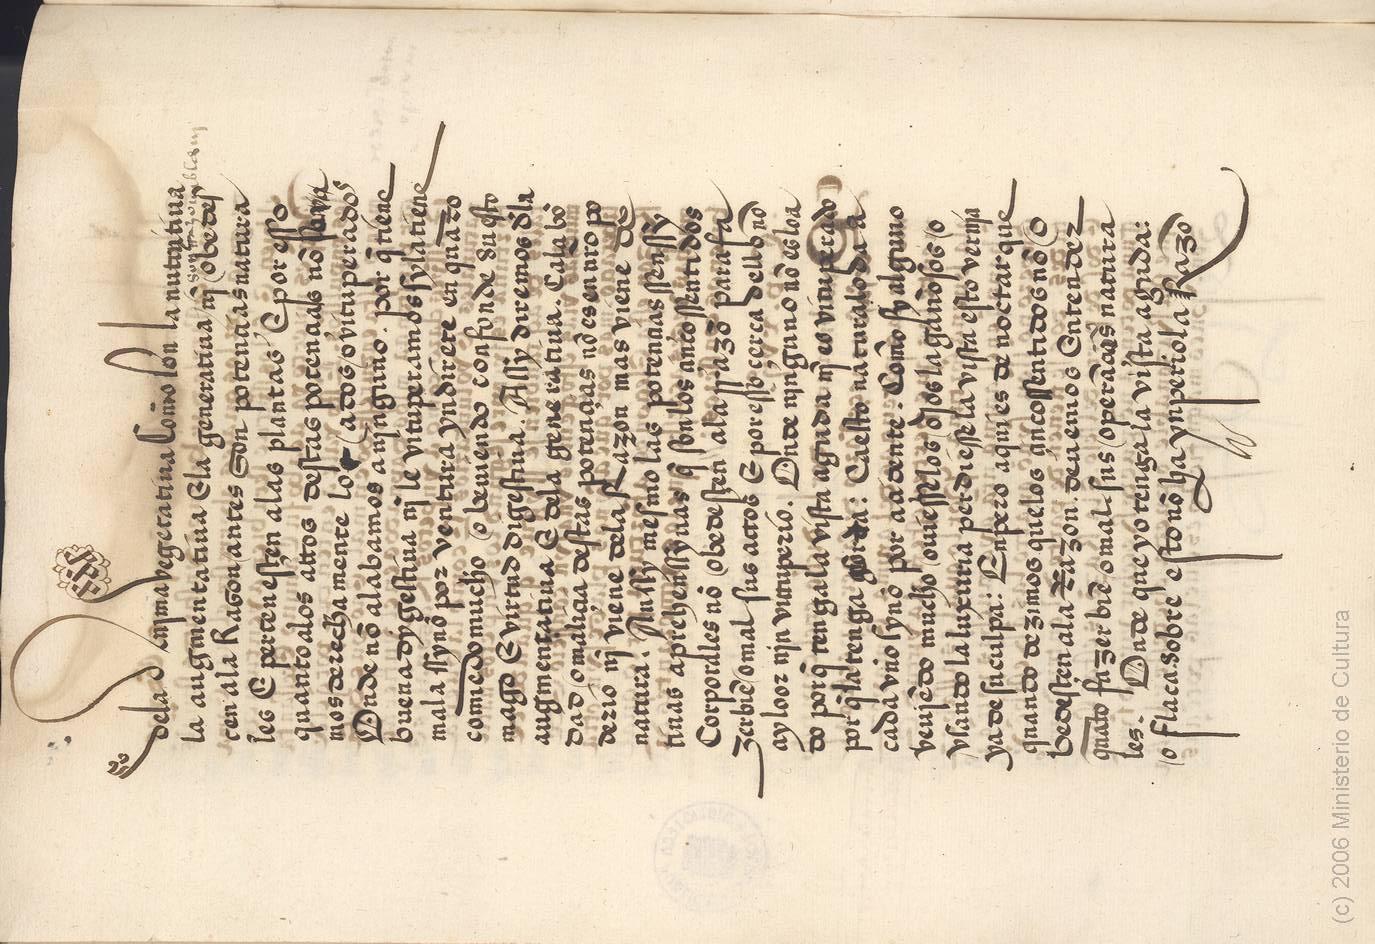 dela Anjma vegetatiua Como son la nutritiua
la augmentatiua E la generatiua nj obedes
cen ala Rason antes Son potencias natura
les E pertenesçen alas plantas E por esso
quanto alos attos destas potencias nõ somos
mos derecha mente loados o vituperados
Onde nõ alabamos a njnguno. por q̃ tiene
buena dygestiua nj le vituperamos sy la tiene
mala ssynõ por ventura yndirete en quãto
comiedo mucho o beuiendo confonde su esto
mago E virtud digestiua. Assy diremos d̃la
augmentatiua E dela generatiua. Ca la bõ
dad o maliçia destas potençias nõ es en nr̃o po
derio nj viene dela Razon mas viene de
natura. Anssy mesmo las potencias senssy
tiuas aprehenssyuas q̃ son los çinco ssentidos
Corporales nõ obedesçen ala rrazõ para fa
zer biẽ o mal sus actos E por esso cerca dellos nõ
ay loor njn vituperio. Onde njnguno nõ es loa
do porq̃ tenga la vista aguda nj es vituperado
por q̃ la tenga gorda: Ca esto natural o da a
cada vno synõ por acidente. Como sy alguno
veuiẽdo mucho ouiesse los ojos lagañosos o
vsando la luxuria perdiesse la vista esto vernja
ya de su culpa: Enpero aqui es de noctar que
quando dezimos que los çinco ssentidos nõ o
bedesçen ala Razon. deuemos Entender
quãto fazer biẽ o mal sus operaçiões natura
les. Onde que yo tenga la vista aguda:
o flaca sobre esto nõ ha ynperio la Razõ
(c) 2006 Ministerio de Cultura